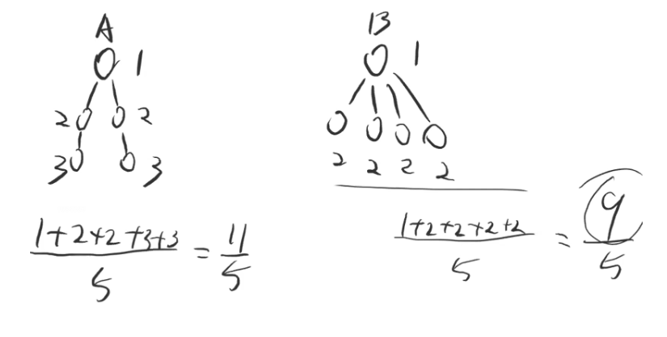 A
1
2 2
3 3
1+2+2+3+3 / 5 = 11 / 5
B
1
2 2 2 2
1+2+2+2+2 / 5 = 9 / 5